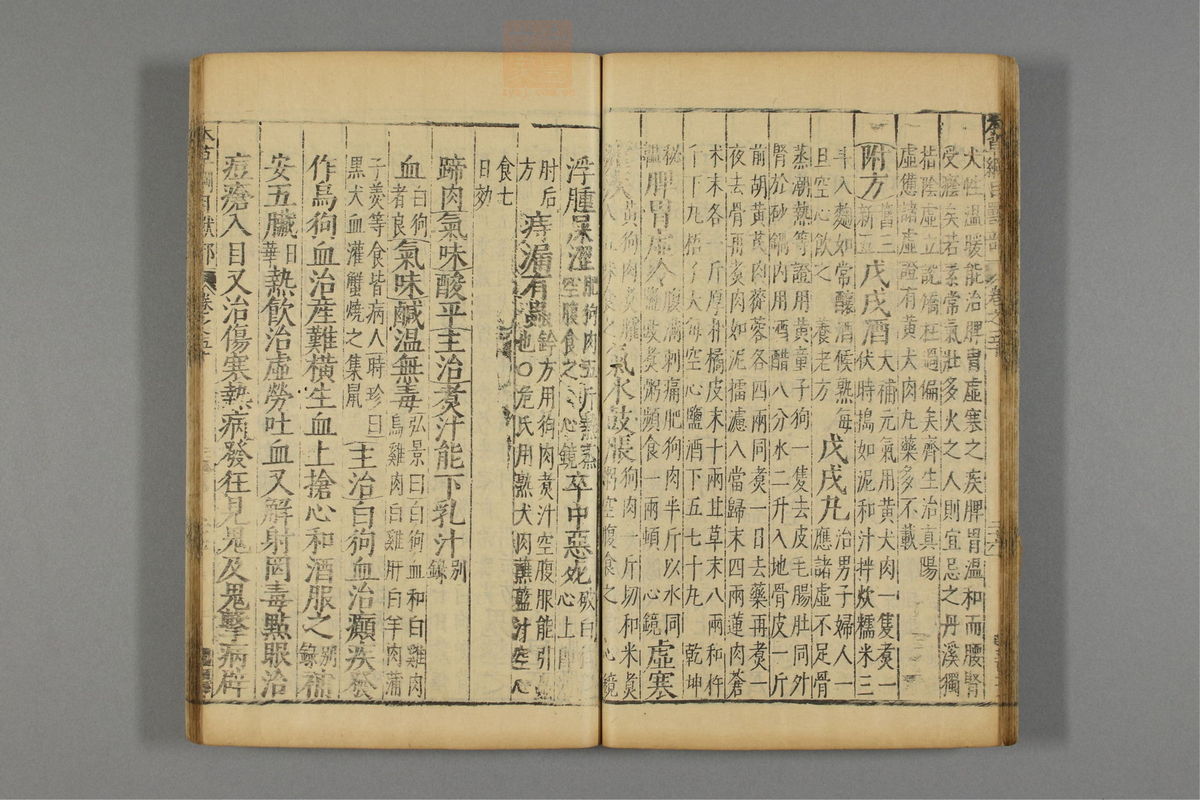 犬性溫暖能治脾胃虛寒之疾脾胃溫和而腰腎
受廕矣若素常氣壯多火之人則宜忌之丹溪獨
指陰虛立說矯枉過偏矣齊生治真陽
虛憊諸虛證有黃犬肉丸藥多不載
附方 舊三新五 戊戌酒 大補元氣用黃犬肉一隻煮一
伏時搗如泥和汁拌炊糯米三
斗入麴如常釀酒候熟每
旦空心飲之 養老方 戊戌丸 治男子婦人一
應諸虛不足骨
蒸潮熱等證用黃童子狗一隻去皮毛腸肚同外
腎於砂鍋內用酒醋八分水二升入地骨皮一斤
前胡黃芪肉蓯蓉各四兩同煮一日去藥再煮一
夜去骨再煮肉如泥擂濾入當歸末四兩蓮肉蒼
朮末各一斤厚朴橘皮末十兩甘草末八兩和杵
千下丸梧子大每空心鹽酒下五七十丸 乾坤
秘 脾胃虛冷 腹滿刺痛肥狗肉半斤以水同
鹽豉煮粥頻食一兩頓 心鏡 虛寒
黃狗肉煮臛
氣水鼓脹 狗肉一斤切和米煮
粥空腹食之 心鏡
浮腫屎澀 肥狗肉五斤熟蒸
空腹食之 心鏡 卒中惡死 破白
心上
肘后
方 痔漏有蟲 鈐方用狗肉煮汁空腹服能引蟲
也○危氏用熟犬肉蘸藍汁空心
食七
日効
蹄肉氣味酸平主治煮汁能下乳汁 別
錄
血 白狗
者良 氣味鹹溫無毒 弘景曰白狗血和白雞肉
烏雞肉白雞肝白羊肉蒲
子羹等食皆病人時珍曰
黑犬血灌蟹燒之集鼠 主治白狗血治癲疾發
作烏狗血治產難橫生血上搶心和酒服之 別
錄 補
安五臟 日
華 熱飲治虛勞吐血又解射罔毒點眼治
痘瘡入目又治傷寒熱病發狂見鬼及鬼擊病辟